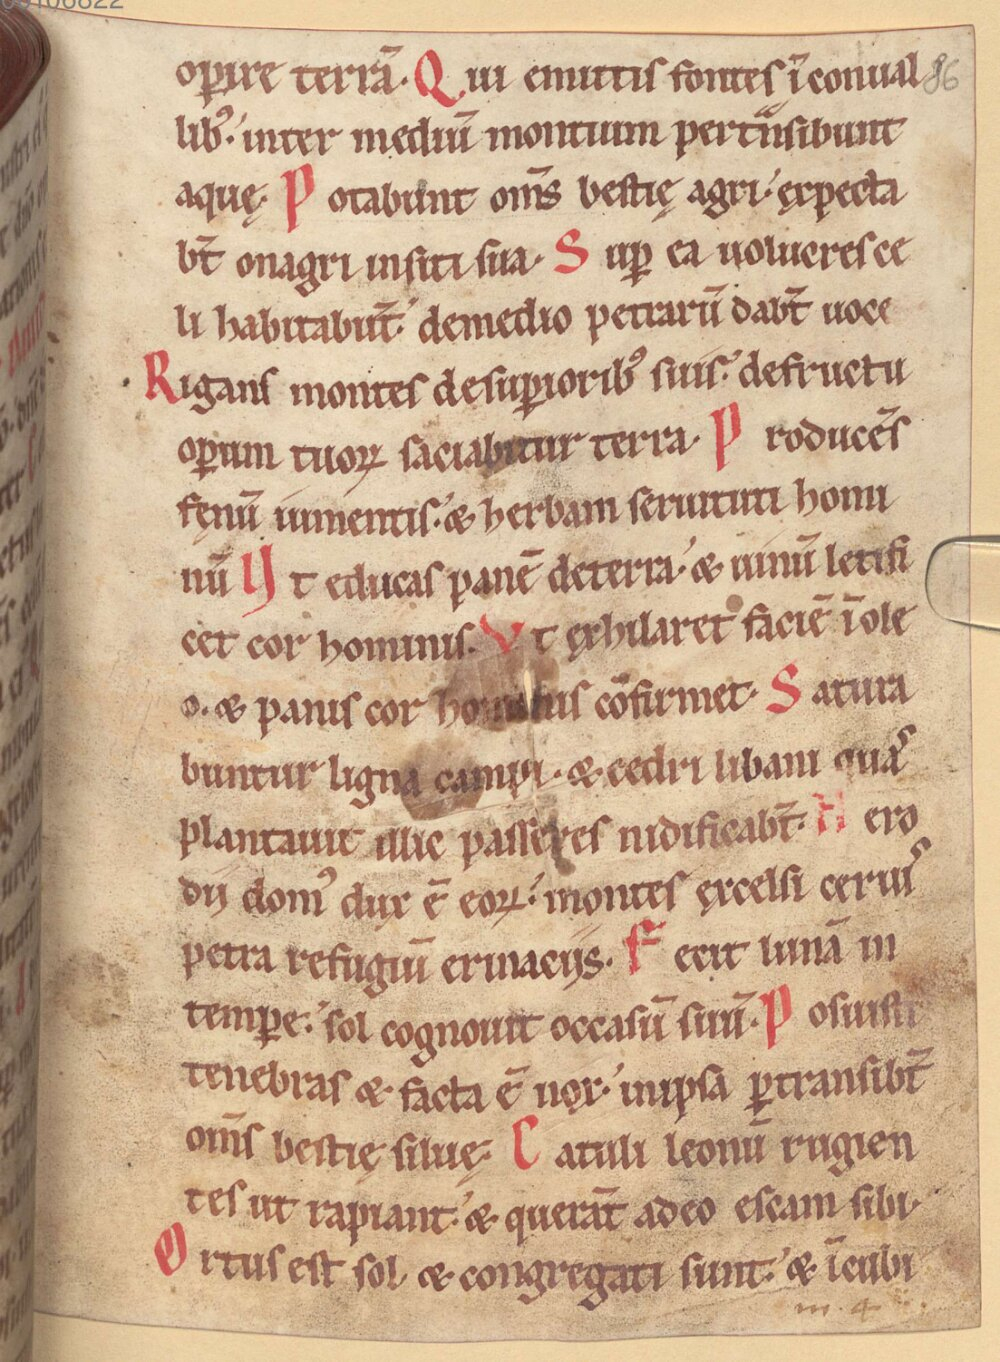 oꝑire terrã. Qui emittis fontes ĩ conual 86
libꝰ. inter mediũ montium pertñsibunt
aquę. Potabunt om̃s bestię agri. ęxpecta
bt̃ onagri insiti sua. Suꝑ ea uolucres ce
li habitabunt̃. demedio petrarũ dabt̃ uoce
Rigans montes desuꝑioribꝰ suis. defructu
oꝑum tuoꝝ saciabitur terra. Producẽs
fęnũ iumentis. & herbam seruituti homi
nũ Ut educas panẽ deterra. & uinũ letifi
cet cor hominis. Vt ęxhilaret faciẽ ĩ ole
o. & panis cor hominis cõfirmet. Satura
buntur ligna campi. & cedri libani quas
plantauit illic passeres nidificabt̃. Hero
dij domꝰ dux ẽ eoꝝ. montes ęxcelsi ceruis
petra refugiũ erinacijs. Fecit lunã in
temꝑe. sol cognouit occasũ suũ. Posuisti
tenebras & facta ẽ nox. inipsa ꝑtransibt̃
om̃s bestię siluę. Catuli leonũ rugien
tes ut rapiant. & querãt adeo escam sibi.
Ortus est sol & congregati sunt. & ĩ cubi